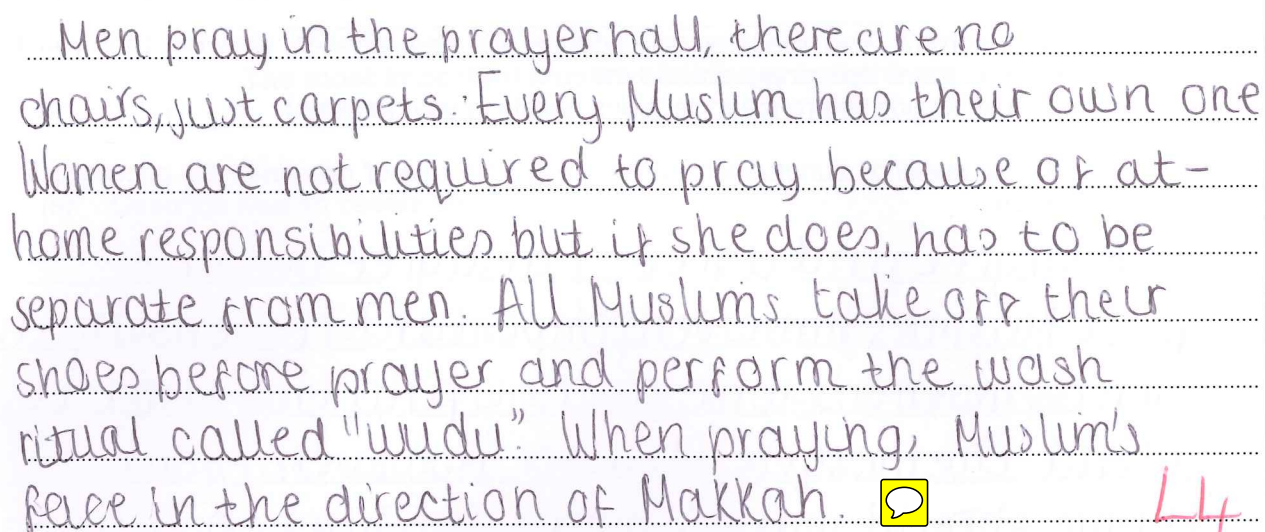 Men pray in the prayer hall, there are no
chairs, just carpets. Every Muslim has their own one
Women are not required to pray because of at-
home responsibilities but if she does, has to be
separate from men. All Muslims take off their
shoes before prayer and perform the wash
ritual called "wudu". When praying, Muslim's
face in the direction of Makkah.
L4